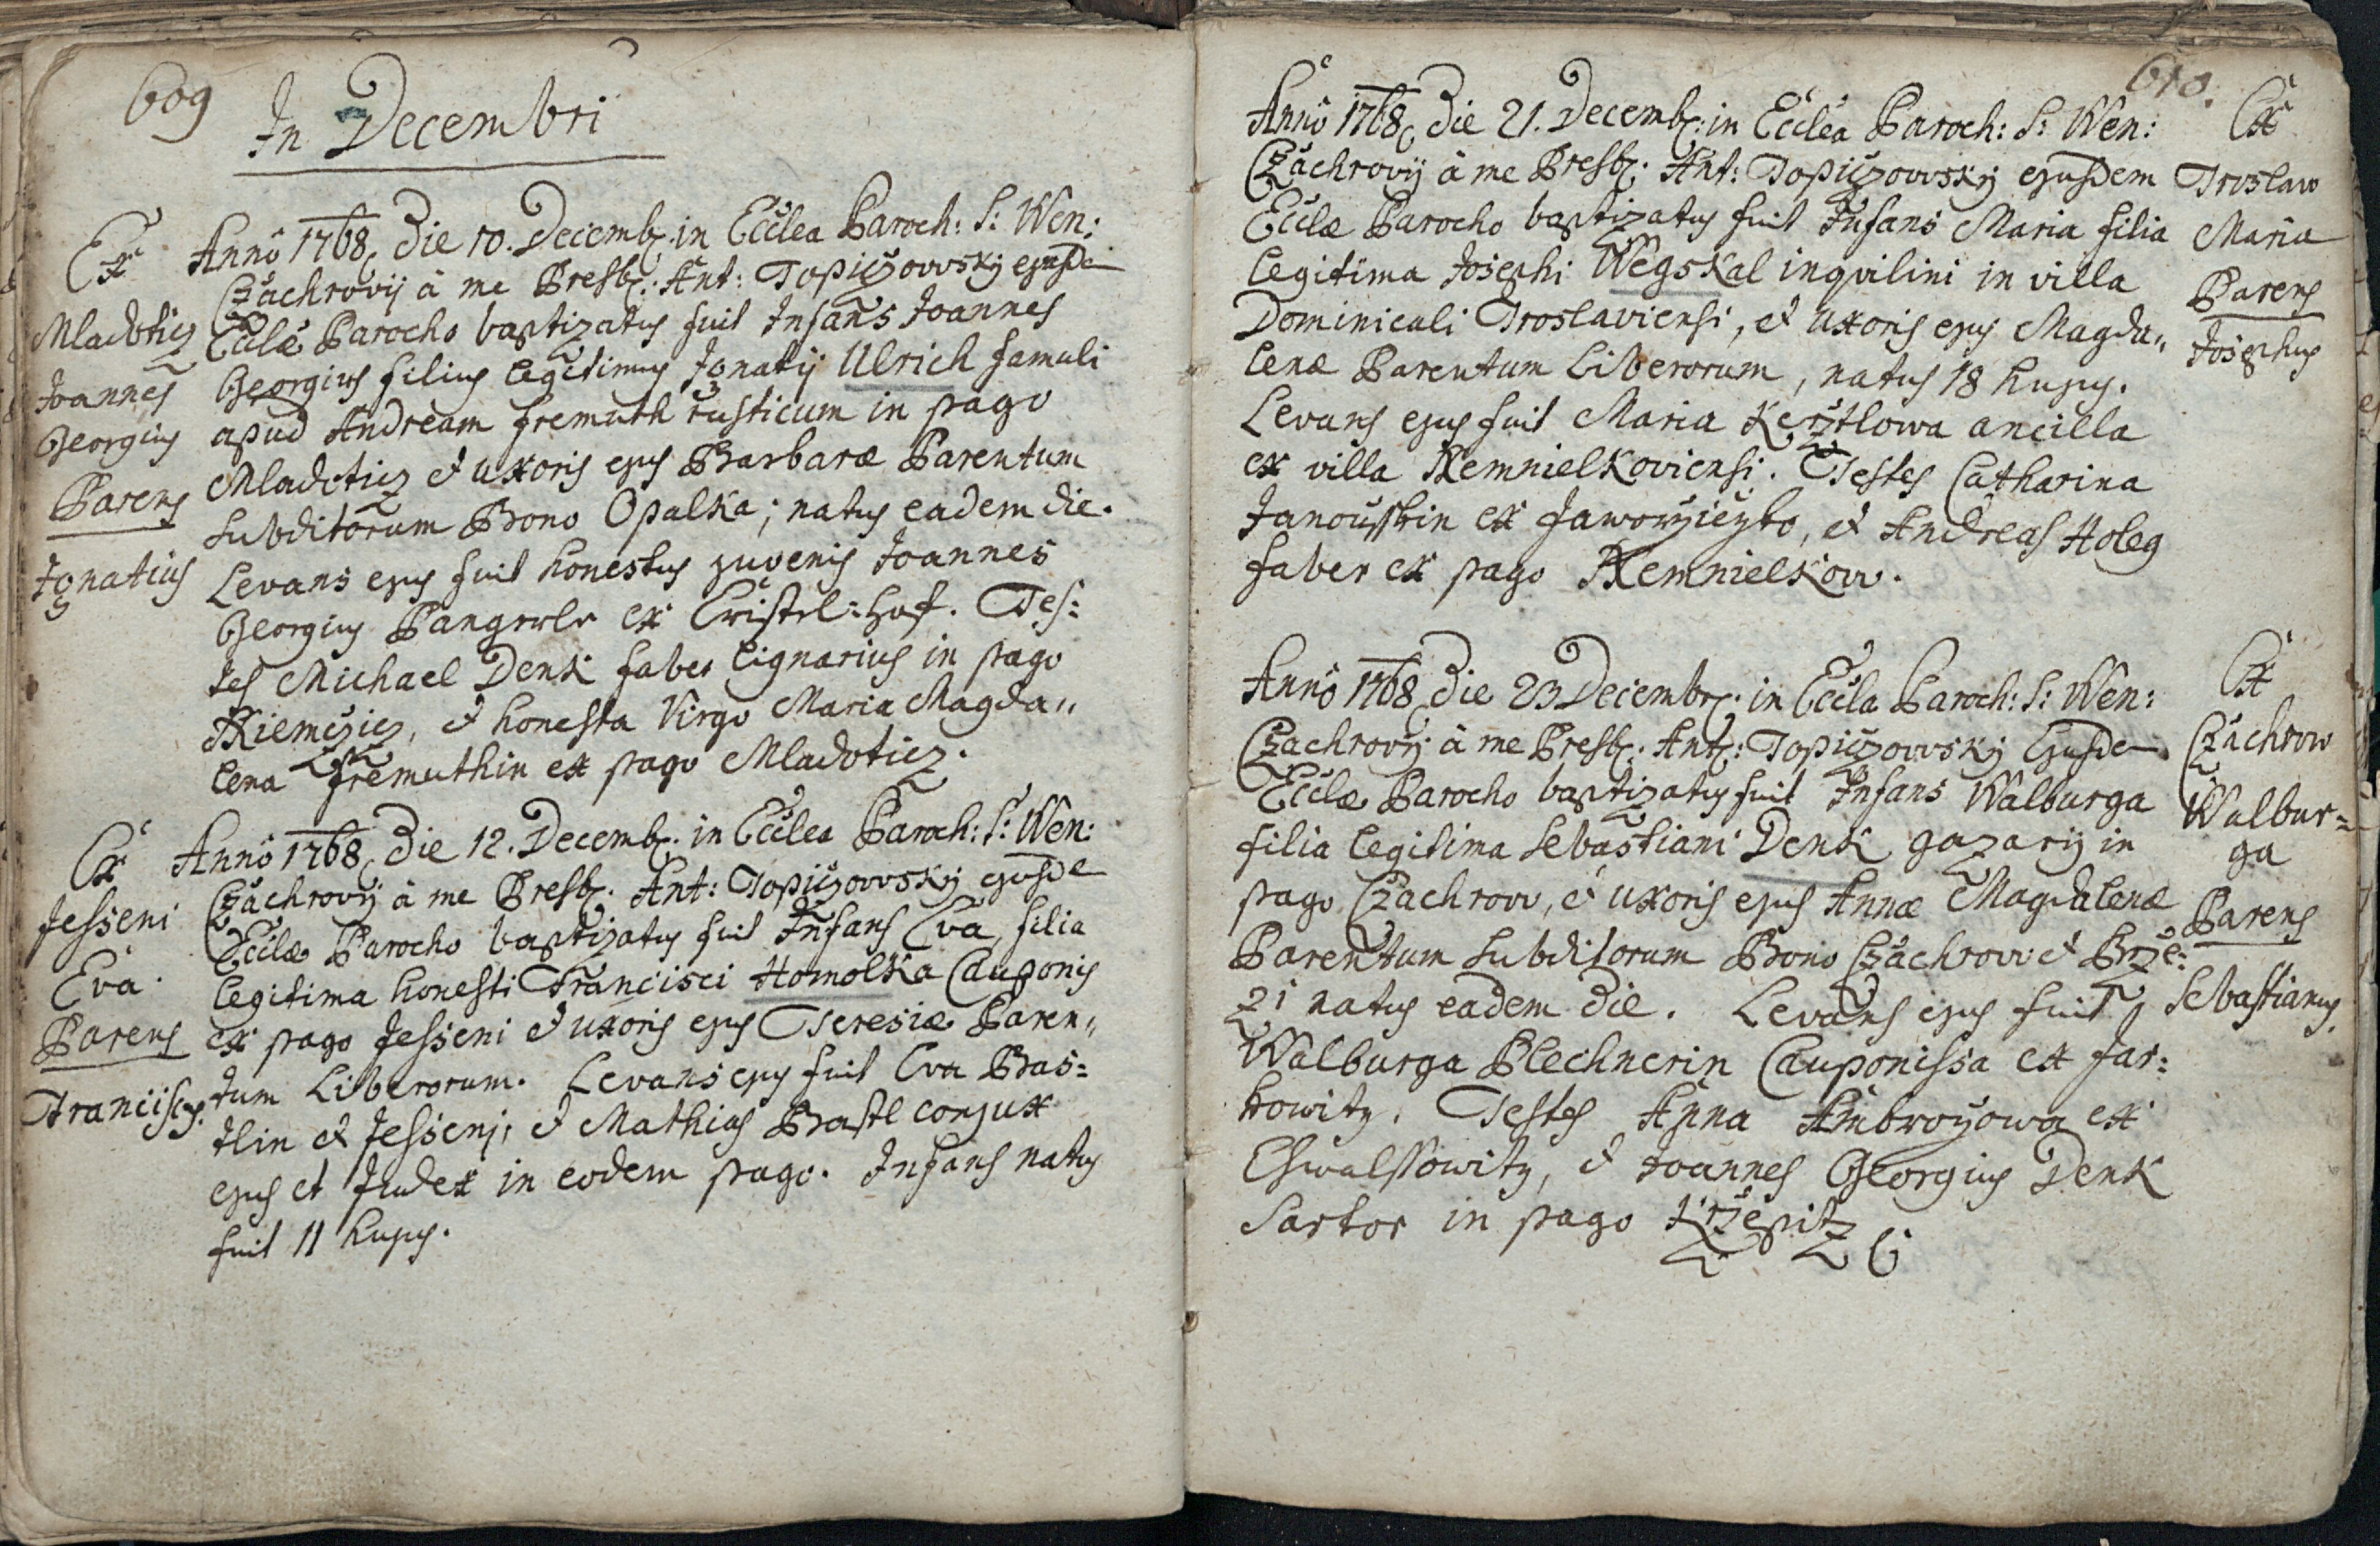 609
In Decembri
Ex
Mladoticz
Joannes
Georgius
Parens
Ignatius
Anno 1768, Die 10. Decemb: in Ecclea Paroch: S: Wen:
Czachrovij à me Presb: Ant: Topiczovvsky ejusde
Ecclæ Parocho baptizatus fuit Infans Joannes
Georgius filius legitimus Ignatij Ulrich famuli
apud Andream Fremuth rusticum in pago
Mladoticz et uxoris ejus Barbaræ Parentum
subditorum Bono Opalka; natus eadem die.
Levans ejus fuit honestus juvenis Joannes
Georgius ex Tes:
tes Michael Denk faber lignarius in pago
Niemczicz, et honesta Virgo Maria Magda„
lena Fremuthin ex pago Mladoticz.
Ex
Jesseni
Eva.
Parens
Franciscus.
Anno 1768, Die 12. Decemb: in Ecclea Paroch: S: Wen:
Czachrovij à me Presb: Ant: Topiczovvsky ejusde
Ecclæ Parocho baptizatus fuit Infans Eva, filia
legitima honesti Francisci Homolka Cauponis
ex pago Jesseni et uxoris ejus Teresiæ Paren„
tum Liberorum. Levans ejus fuit Eva Bas=
tlin ex Jessenj, et Mathias Bastl conjux
ejus et Judex in eodem pago. Infans natus
fuit 11 hujus.
610.
Anno 1768, Die 21. Decemb: in Ecclea Paroch: S: Wen:
Czachrovij à me Presb: Ant: Topiczovvsky ejusdem
Ecclæ Parocho baptizatus fuit Infans Maria filia
legitima Josephi Wegskal inqvilini in villa
Dominicali Troslaviensi, et uxoris ejus Magda„
lenæ Parentum Liberorum, natus 18 hujus.
Levans ejus fuit Maria ancilla
ex villa Nemnielkoviensi. Testes Catharina
Janousskin ex et Andreas Holeg
faber ex pago Nemnielkovv.
Ex
Troslaw
Maria
Parens
Josephus
Anno 1768, Die 23 Decembr: in Eccla Paroch: S: Wen:
Czachrovij à me Presb: Ant: Topiczovvsky Ejusde
Ecclæ Parocho baptizatus fuit Infans Walburga
filia legitima Sebastiani Denk gazarij in
pago Czachrovv, et uxoris ejus Annæ Magdalenæ
Parentum subditorum Bono Czachrovv et Brze:
zi natus eadem die. Levans ejus fuit
Walburga Plechnerin Cauponissa ex Jar:
kowitz. Testes Anna Ambrozowa ex
Chwalssowitz, et Joannes Georgius Denk
Sartor in pago Krzepitz
Ex
Czachrow
Walbur=
ga
Parens
Sebastianus.